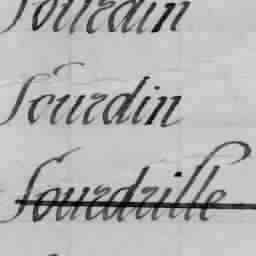 Sourdin
Sourdin
Sourdrille